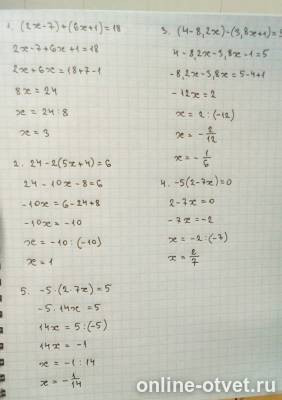 1. (2x-7)+(6x+1)=18
2x-7+6x+1=18
2x+6x=18+7-1
8x=24
x=24:8
x=3
2. 24-2(5x+4)=6
24-10x-8=6
-10x=6-24+8
-10x=-10
x=-10:(-10)
x=1
3. (4-8,2x)-(3,8x+1)=5
4-8,2x-3,8x-1=5
-8,2x-3,8x=5-4+1
-12x=2
x=2:(-12)
x=-2/12
x=-1/6
4. -5(2-7x)=0
2-7x=0
-7x=-2
x=-2:(-7)
x=2/7
5. -5·(2·7x)=5
-5·14x=5
14x=5:(-5)
14x=-1
x=-1:14
x=-1/14
online-otvet.ru